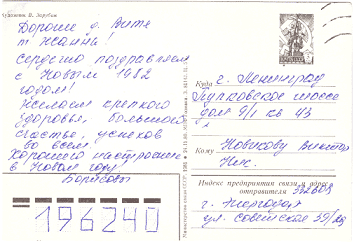 Художник В. Зарубин
Дорогие д. Витя
т Жанна!
Сердечно поздравляем
с Новым 1982
годом!
Желаем крепкого
здоровья, большого
счастья, успехов
во всем
Хорошего настроения
в Новом году!
Борисовы
Куда г. Ленинград
Пулковское шоссе
дом 9/1 кв 43
Кому Новикову
Ник.
Индекс предприятия связи и адрес
отправителя
г.
ул. Советская
196240